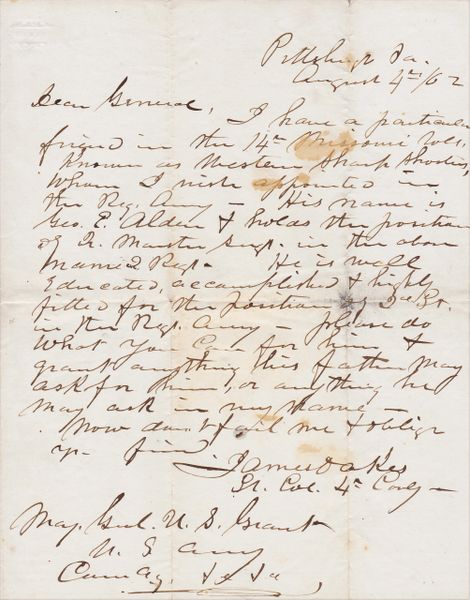 Pittsburgh Pa.
August 4th /62
Dear General,
I have a particular
friend in the 14th Missouri Vols.
Known as Western Sharp Shooters,
Whom I wish appointed in
the Reg. Army — His name is
Geo. E. Alden & holds the position
of Qr. Master Sergt. in the above
named Regt. He is well
Educated, accomplished & highly
fitted for the position of 2d Lt.
in the Regr. Army — please do
What you Can for him &
grant anything his father may
ask for him, or anything he
may ask in my name —
Now don't fail me & oblige
yr friend
James Oakes
Lt. Col. 4th Cavy —
Maj. Genl. U. S. Grant
U. S. Army
Comdg.